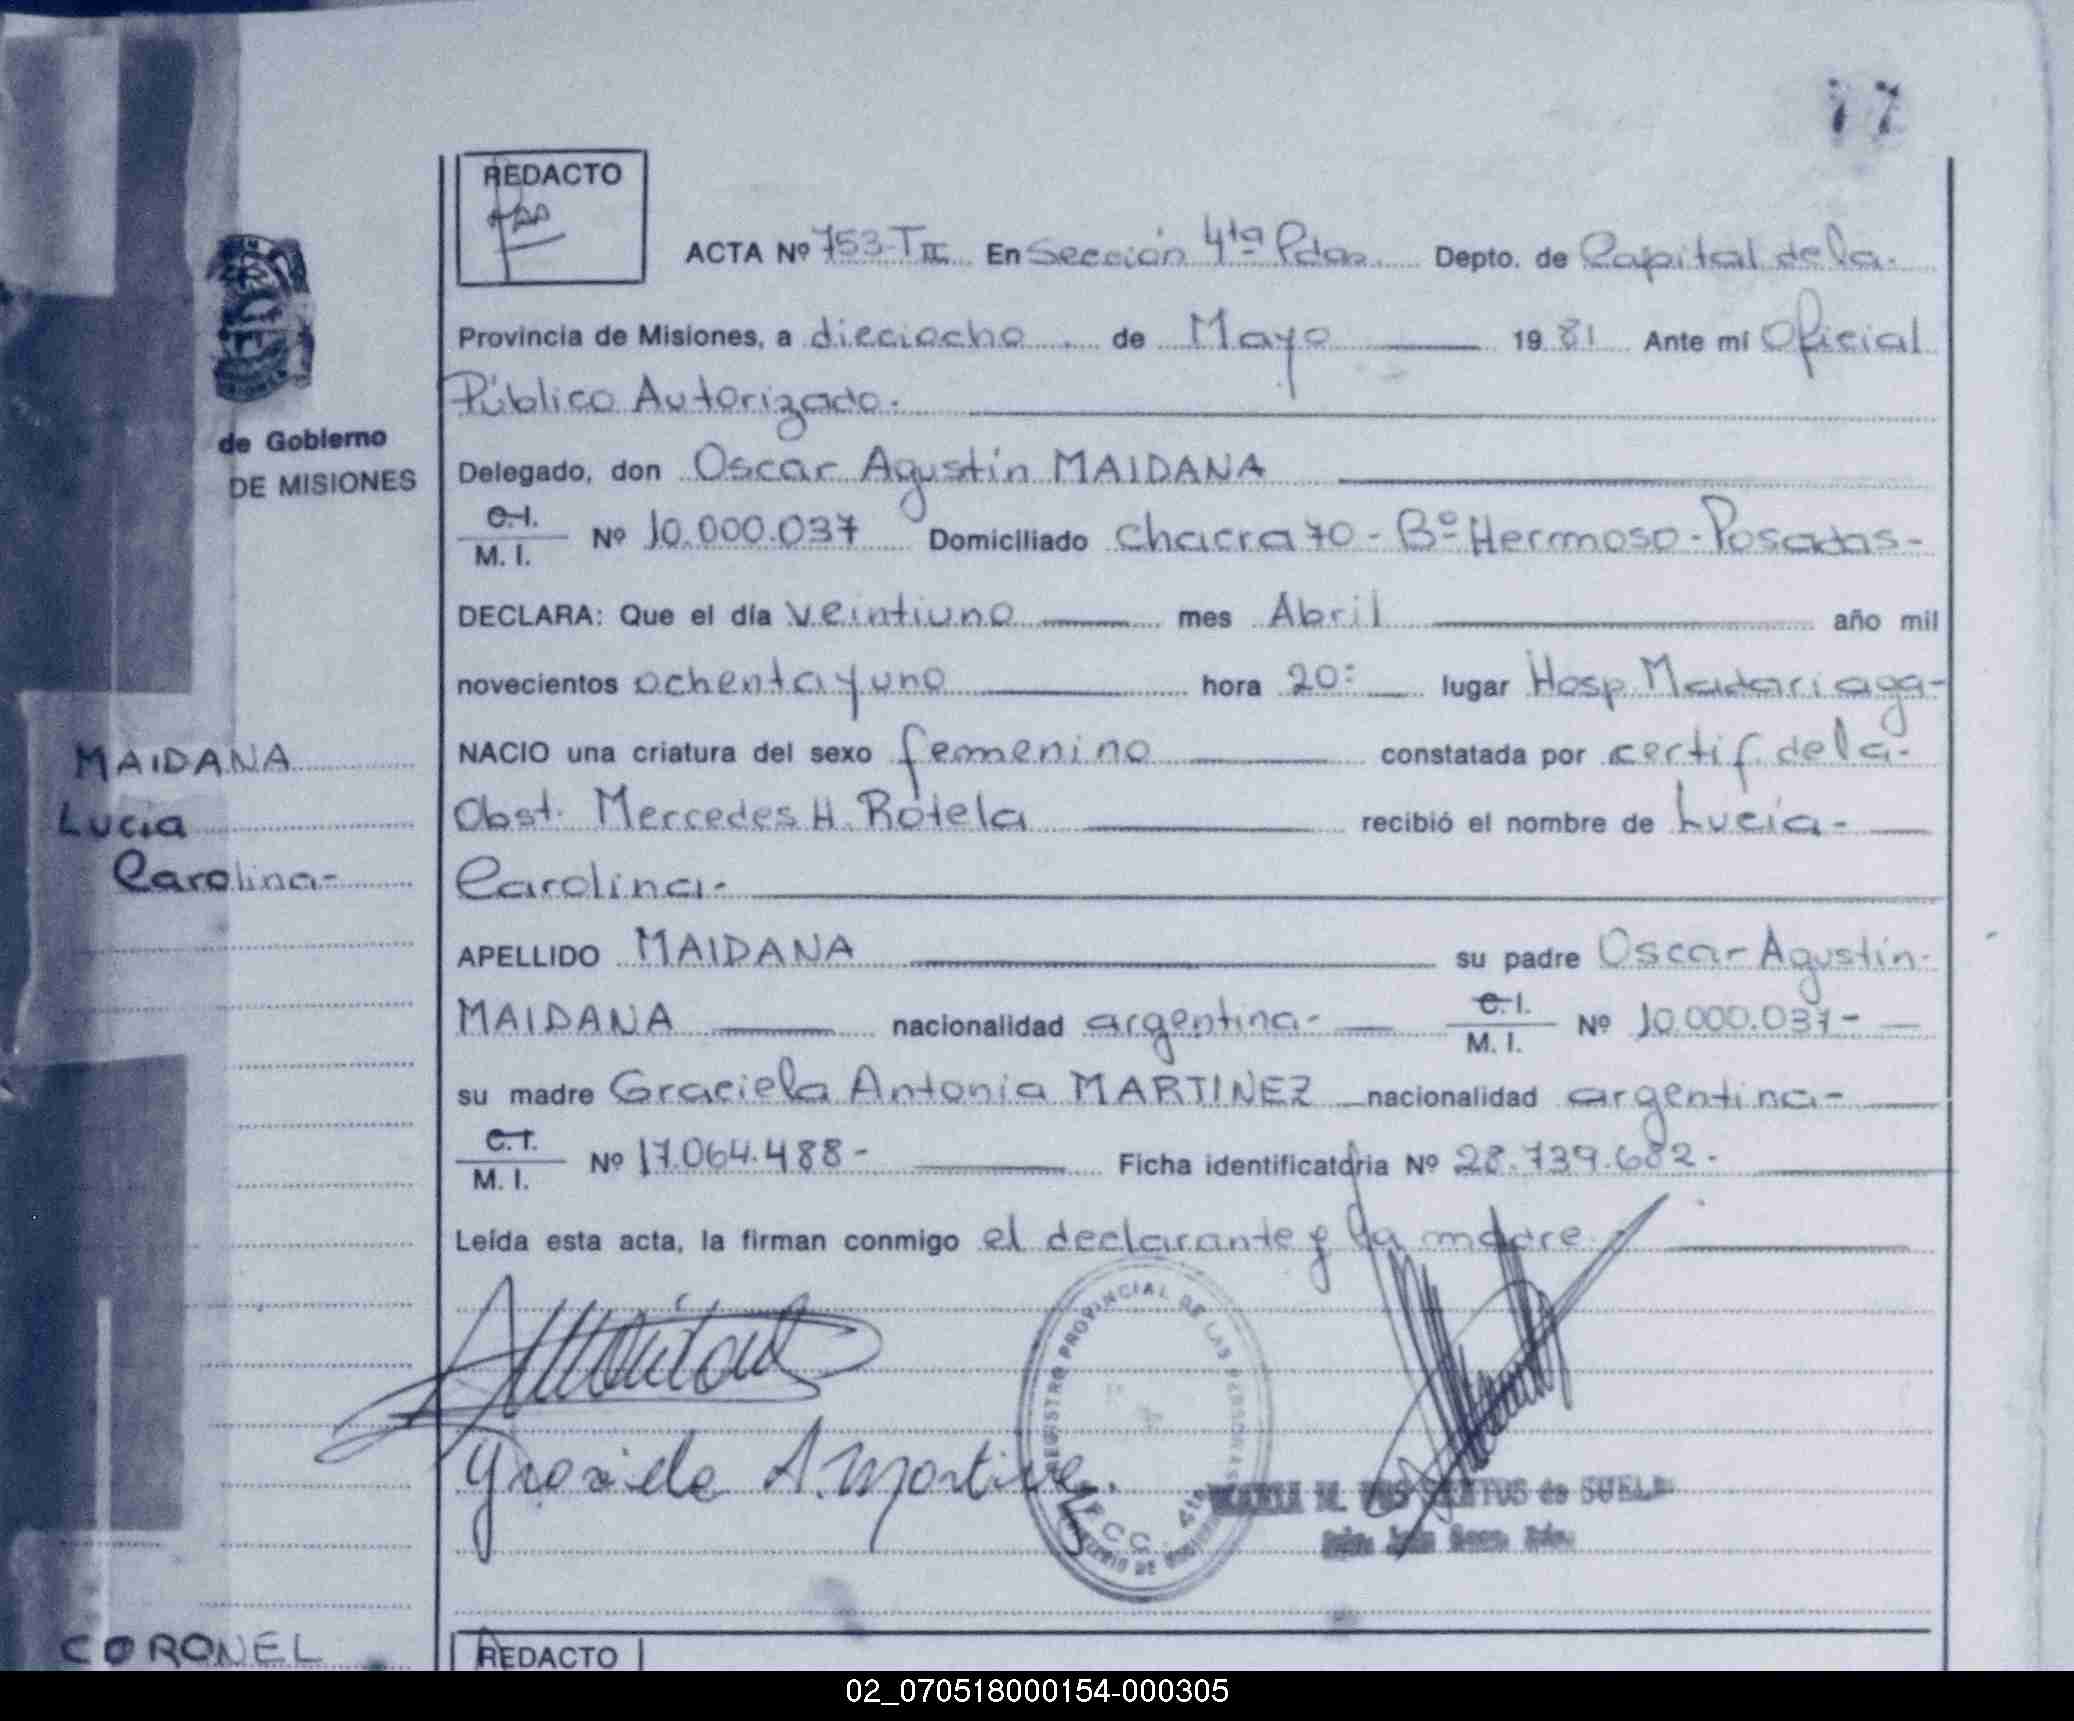 77
REDACTO
ACTA Nº 753-TII En Sección 4ta Pdas. Depto. de Capital de la
Provincia de Misiones, a dieciocho de Mayo 1981 Ante mí Oficial
Público Autorizado.
de Gobierno
DE MISIONES
Delegado, don Oscar Agustín MAIDANA
C.I. M. I. Nº 10.000.037 Domiciliado Chacra 70 - Bº Hermoso - Posadas -
DECLARA: Que el día veintiuno mes Abril año mil
novecientos ochenta y uno hora 20: lugar Hosp. Madariaga -
MAIDANA
Lucia
Carolina -
NACIO una criatura del sexo femenino constatada por certif. de la -
Obst. Mercedes H. Rotela recibió el nombre de Lucía -
Carolina -
APELLIDO MAIDANA su padre Oscar Agustín -
MAIDANA nacionalidad argentina - C.I. M. I. Nº 10.000.037 -
su madre Graciela Antonia MARTINEZ nacionalidad argentina -
C.I. M. I. Nº 17.064.488 - Ficha identificatoria Nº 28.739.682 -
Leída esta acta, la firman conmigo el declarante y la madre
Graciela A. Martinez
REGISTRO PROVINCIAL DE LAS PERSONAS
MARIA M. DOS SANTOS de SUEL
CORONEL
REDACTO
02_070518000154-000305